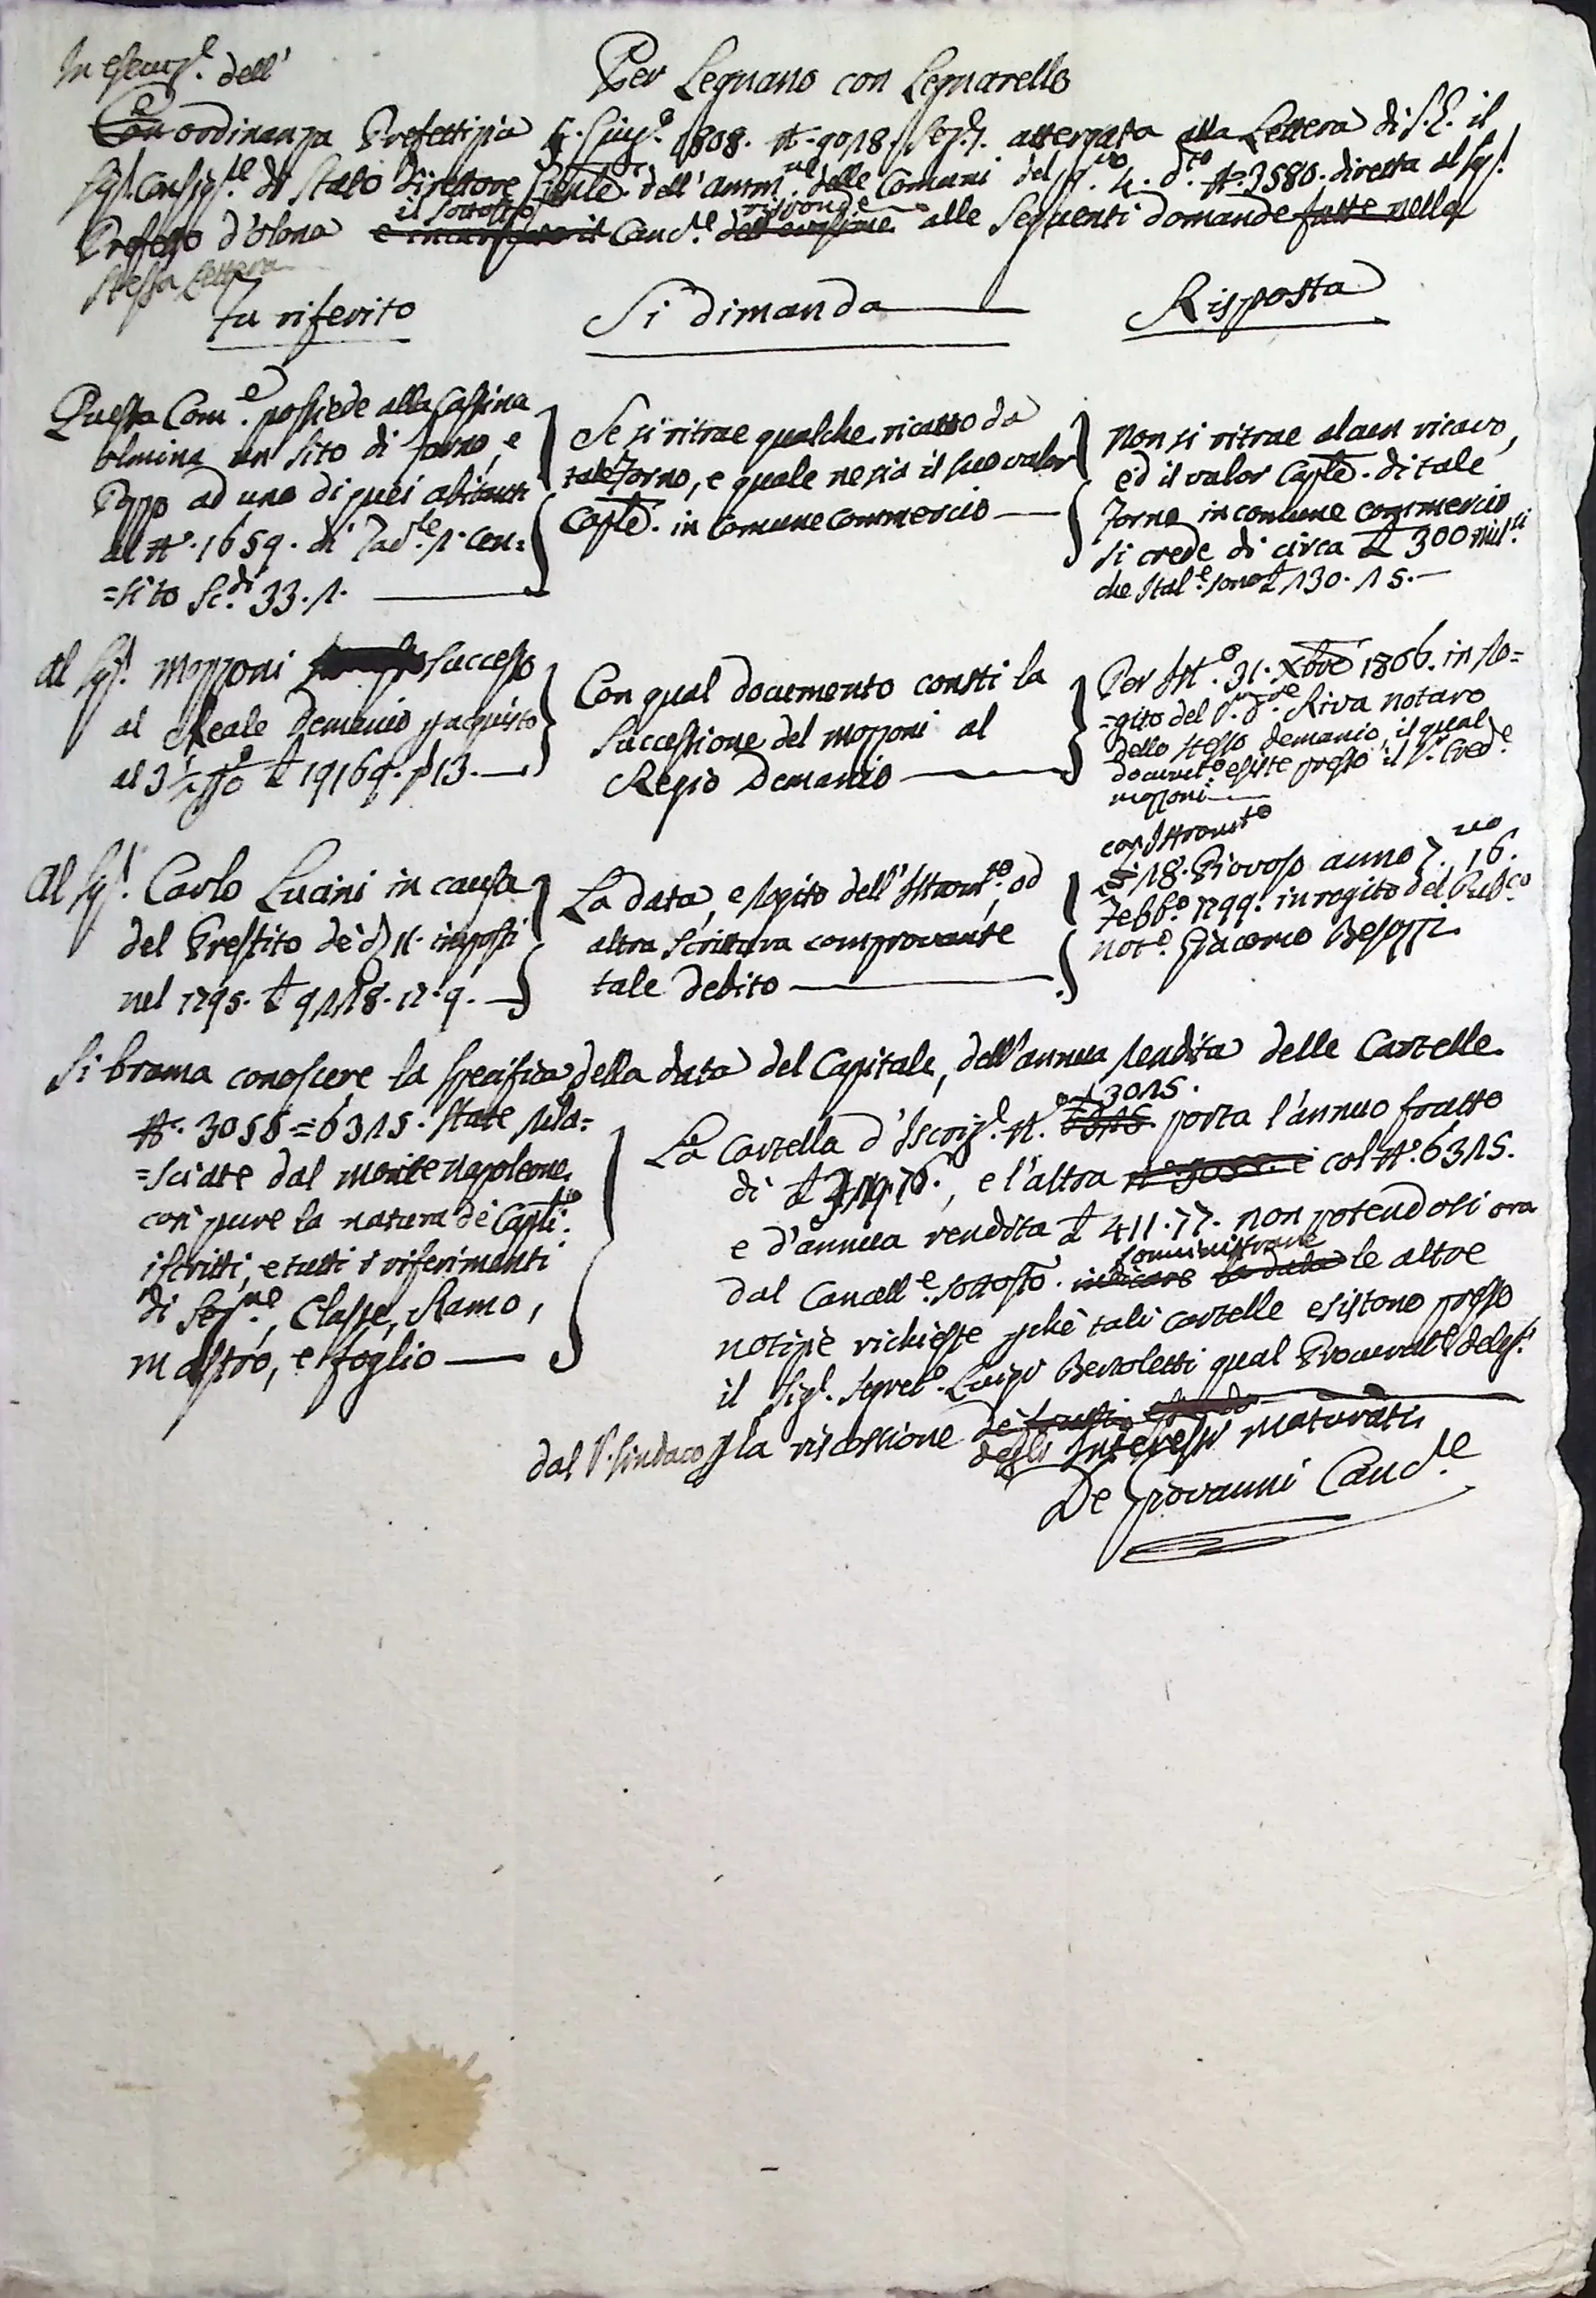 Per Legnano con Legnarello
In esecuz.e dell'
Con ordinanza Prefettizia 5. Giug.o 1808. N.o 9018. Sez. 1. attergata alla Lettera di S. E. il
Sig.r Consig.re di Stato Direttore Gnle. dell'Amm.ne delle Comuni del g.no 4. d.to N.o 3580. diretta al Sig.r
il sottos.to risponde
Prefetto d'Olona e incaricato il Canc.re dell'evasione alle seguenti domande fatte nella
stessa Lettera
Fu riferito
Si dimanda
Risposta
Questa Com.e possiede alla Cassina
olmina un sito di forno, e
Pozzo ad uno di quei abitanti
al N.o 1659. di Tav.le 1. cen=
=sito Sc.di 33.1.
Se si ritrae qualche ricavo da
tale Forno, e quale ne sia il suo valor
Caple. in Comune Commercio
Non si ritrae alcun ricavo,
ed il valor Caple. di tale
Forno in comune commercio
si crede di circa L 300 mil.si
che Ital.e sono L 130.15.
Al Sig.r Mozzoni successo
al Reale Demanio p acquisto
al 3 1/2 p%o L 19169. p 13.
Con qual documento consti la
successione del Mozzoni al
Regio Demanio
Per Ist.o 31. Xbre 1806. in ro=
=gito del S.r D.re Riva notaro
dello stesso demanio, il qual
documto esiste presso il S.r Cred.e
mozzoni
con Istromto
Al Sig.r Carlo Lucini in causa
del Prestito de' d/11. imposti
nel 1795. L 9118.17.9.
La data, e rogito dell'Istrom.to, od
altra scrittura comprovante
tale debito
18. Piovoso anno 7.mo 16.
Febb.o 1799. in rogito del Pub.co
not.o Giacomo Besozzi.
Si brama conoscere la specifica della data del Capitale, dell'annua rendita delle Cartelle
N.o 3055=6315. state rila=
=sciate dal monte Napoleone
così pure la natura de' Capli.
iscritti, e tutti i riferimenti
di Sez.ne, Classe, Ramo,
mastro, e foglio
3015.
La Cartella d'Iscriz.e N. porta l'annuo frutto
di L , e l'altra N.o 3055. e col N.o 6315.
e d'annua rendita L 411.77. non potendosi ora
somministrare
dal Cancell.e sottosto. indicare la data le altre
notizie richieste pchè tali cartelle esistono presso
il Sig.r Segret.o Luigi Bertoletti qual Procurat.e deleg.o
dal S.r Sindaco p la riscossione de' frutti
degli Interessi maturati
De Giovanni Canc.re